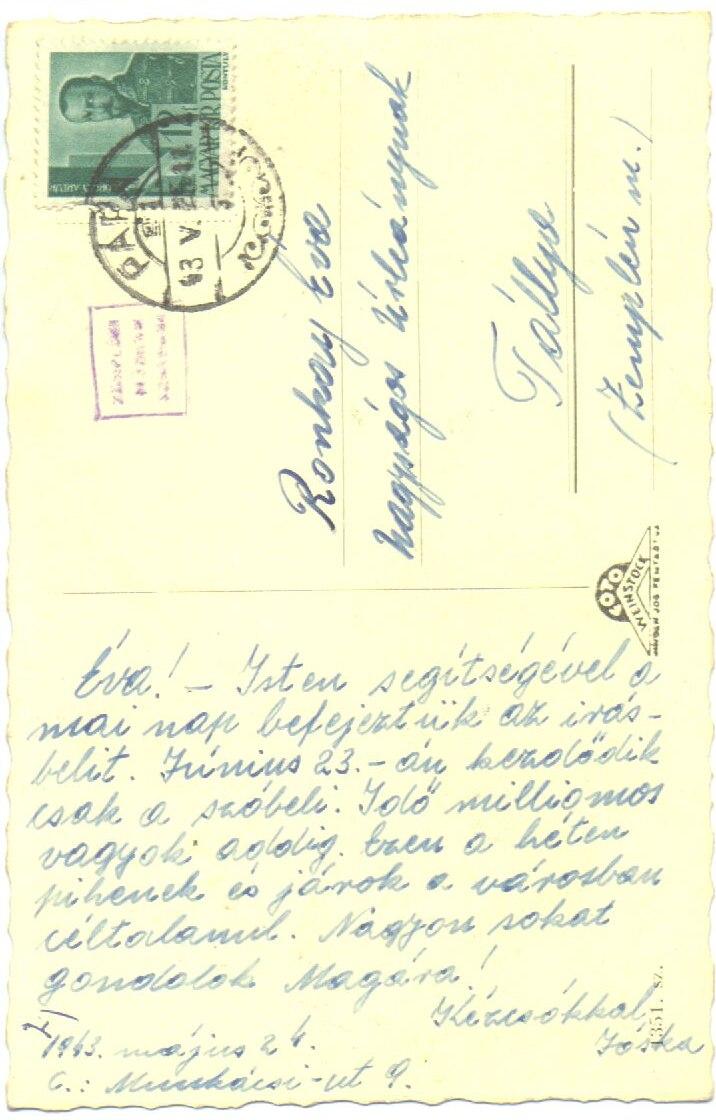 MAGYAR POSTA
PÁPA
43 V. 25
Ronkay Éva
nagyságos Úrleánynak
Tállya
(Zemplén m.)
FOTO
WEINSTOCK
MINDEN JOG FENTARTVA
Éva! – Isten segítségével a
mai nap befejeztük az irás-
belit. Június 23.-án kezdődik
csak a szóbeli. Idő milliomos
vagyok addig. Ezen a héten
pihenek és járok a városban
céltalanul. Nagyon sokat
gondolok Magára!
Kézcsókkal
Jóska
1943. május 24.
C.: Munkácsi-ut 9.
1351. sz.